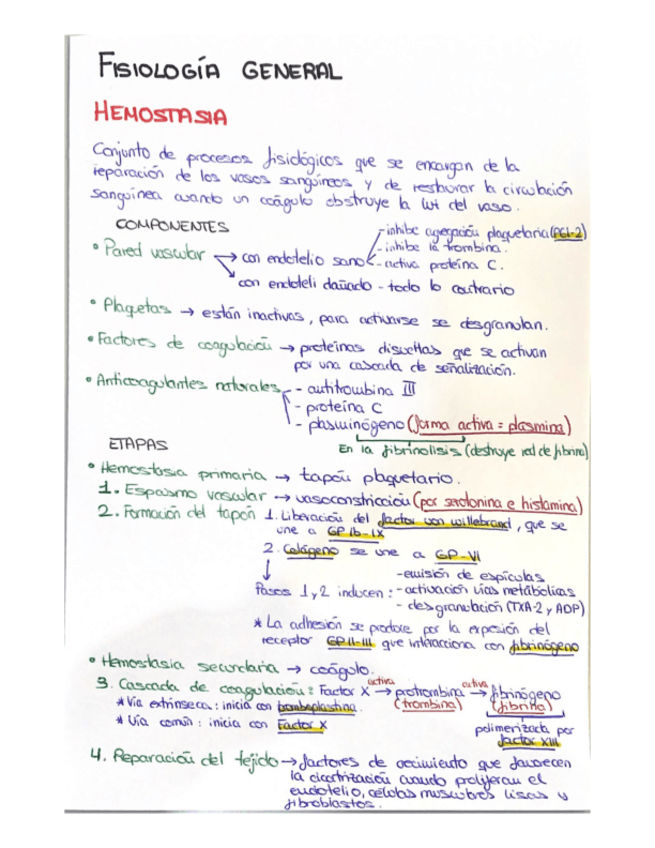 FISIOLOGÍA GENERAL
HEMOSTASIA
Conjunto de procesos fisiológicos que se encargan de la
reparación de los vasos sanguíneos y de restaurar la circulación
sanguínea cuando un coágulo obstruye la luz del vaso.
COMPONENTES
• Pared vascular → con endotelio sano - inhibe agregación plaquetaria (PGI-2)
- inhibe la trombina.
- activa proteína C.
→ con endoteli dañado - todo lo contrario
• Plaquetas → están inactivas, para activarse se desgranulan.
• Factores de coagulación → proteínas disueltas que se activan
por una cascada de señalización.
• Anticoagulantes naturales - antitrombina III
- proteína C
- plasminógeno (forma activa = plasmina)
En la fibrinolisis (destruye red de fibrina)
ETAPAS
• Hemostasia primaria → tapón plaquetario.
1. Espasmo vascular → vasoconstricción (por serotonina e histamina)
2. Formación del tapón 1. Liberación del factor von willebrand, que se
une a GP Ib-IX
2. Colágeno se une a GP-VI
↓
Pasos 1 y 2 inducen: - emisión de espículas
- activación vías metabólicas
- desgranulación (TXA-2 y ADP)
* La adhesión se produce por la expesión del
receptor GPII-III que interacciona con fibrinógeno
• Hemostasia secundaria → coágulo.
3. Cascada de coagulación: Factor X activa → protrombina activa → fibrinógeno
(trombina) (fibrina)
* Vía extrínseca: inicia con tromboplastina.
* Vía común: inicia con Factor X
polimerizada por
factor XIII
4. Reparación del tejido → factores de crecimiento que favorecen
la cicatrización cuando proliferan el
endotelio, células musculares lisas y
fibroblastos.